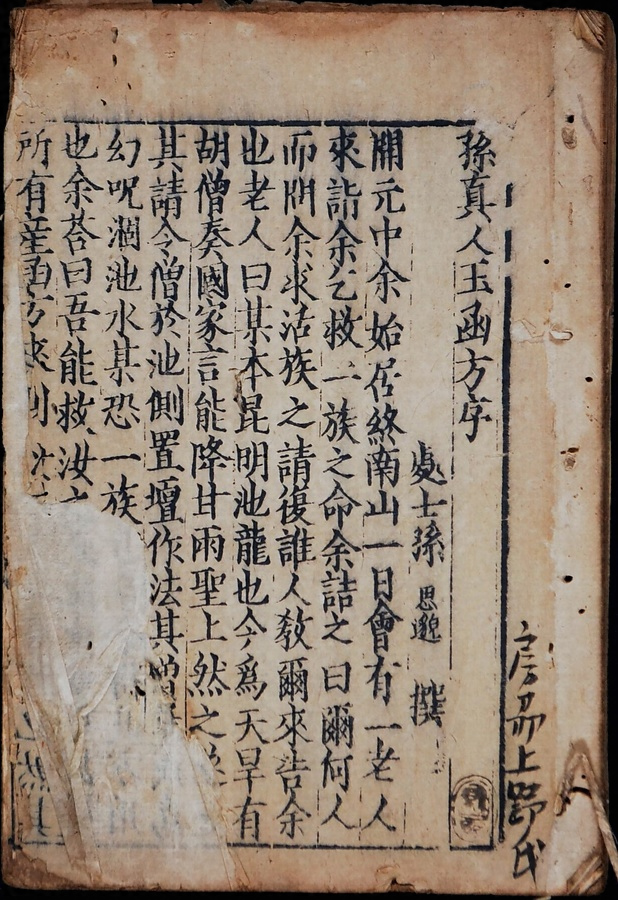 孫真人玉函方序
處士孫 思邈 撰
開元中余始居終南山一日會有一老人
來詣余乞救一族之命余詰之曰爾何人
而問余求活族之請復誰人教爾來告余
也老人曰某本昆明池龍也今爲天旱有
胡僧奏國家言能降甘雨聖上然之
其請令僧於池側置壇作法其
幻呪涸池水某恐一族
也余荅曰吾能救汝
所有產函方
上野氏